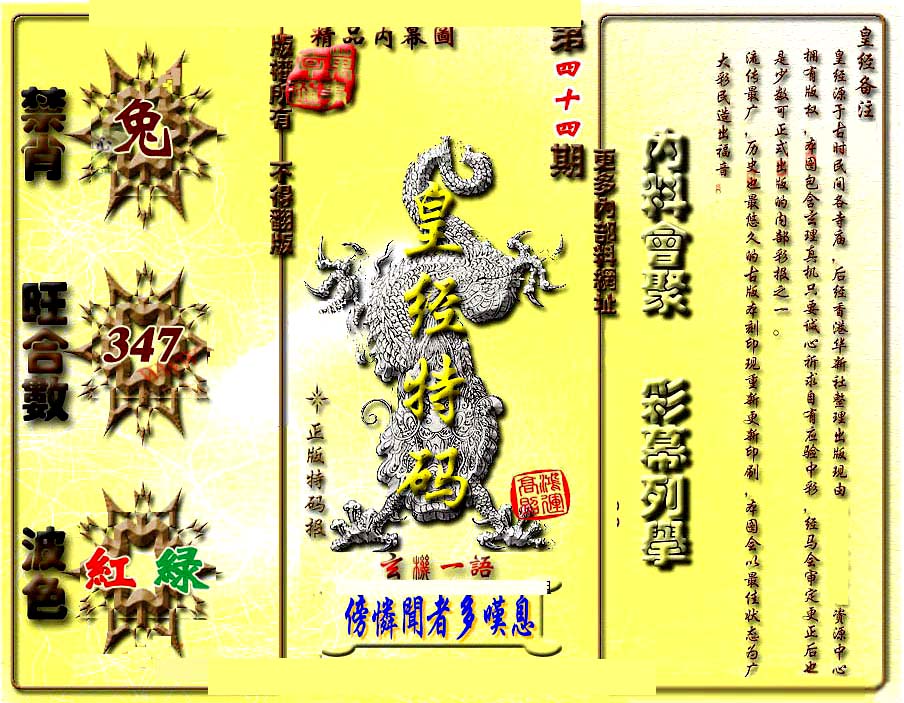 精品内幕圖
第四十四期
版權所有 不得翻版
更多內部料網址
禁肖
兔
旺合數
347
波色
紅 綠
皇经特码
正版特码报
鴻運高照
玄機一語
傍憐聞者多嘆息
內料會聚
彩幕列舉
皇经备注
皇经源于古时民间各寺庙，后经香港华新社整理出版现由 资源中心
拥有版权，本图包含玄理真机只要诚心祈求自有应验中彩，经马会审定更正后也
是少数可正式出版的内部彩报之一。
流传最广，历史也最悠久的古版本刻印现重新更新印刷，本图会以最佳状态为广
大彩民造出福音